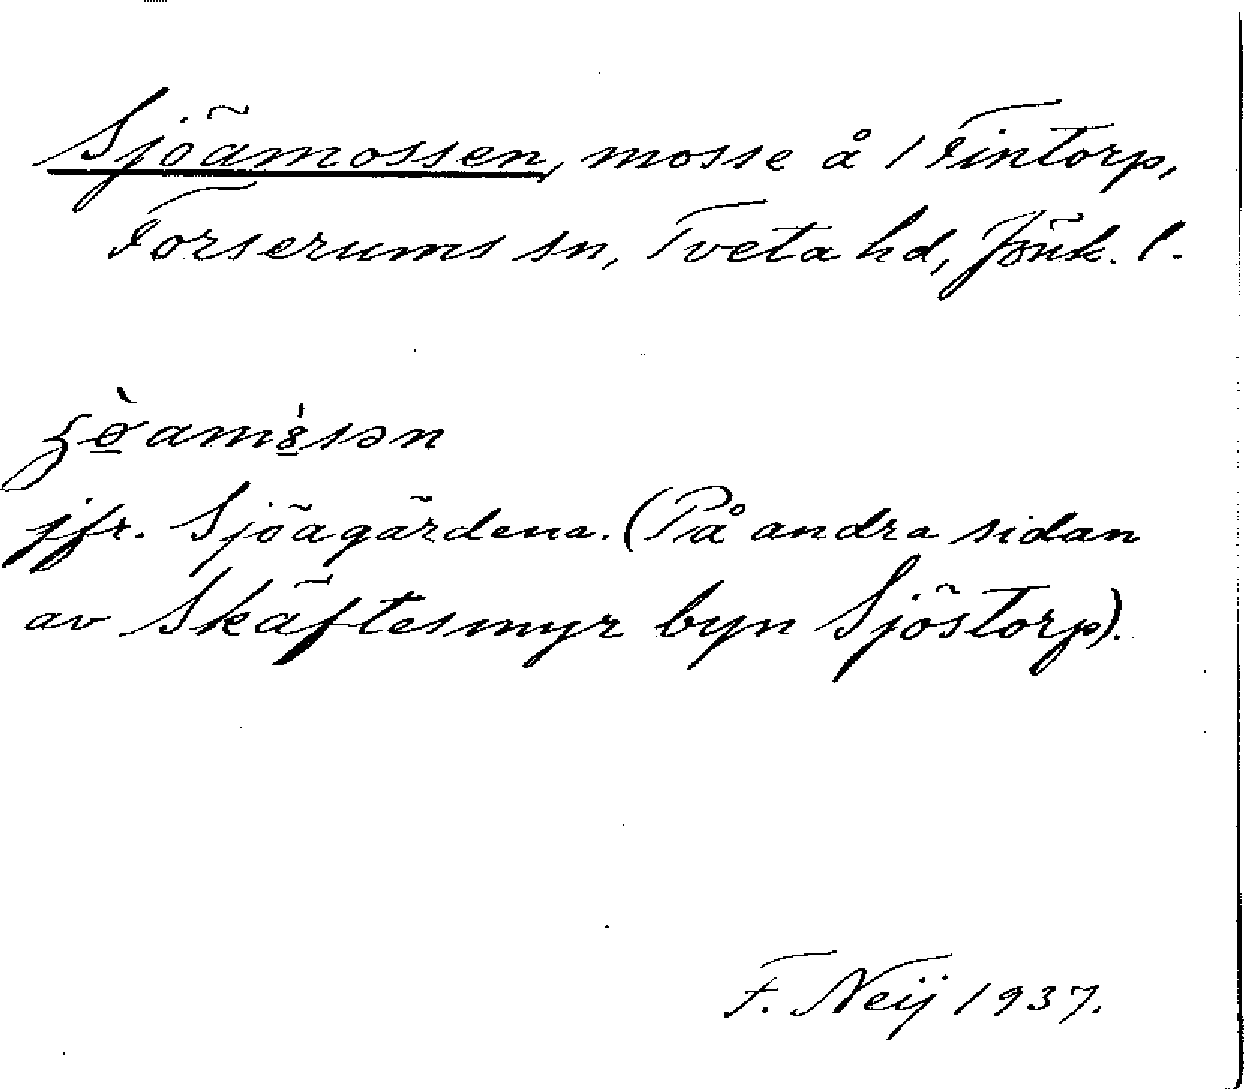 Sjöamossen, mosse å / Fintorp,
Forserums sn, Tveta hd, Jönk. l.
jfr. Sjöagärdena. (På andra sidan
av Skäftesmyr byn Sjöstorp).
F. Neij 1937.